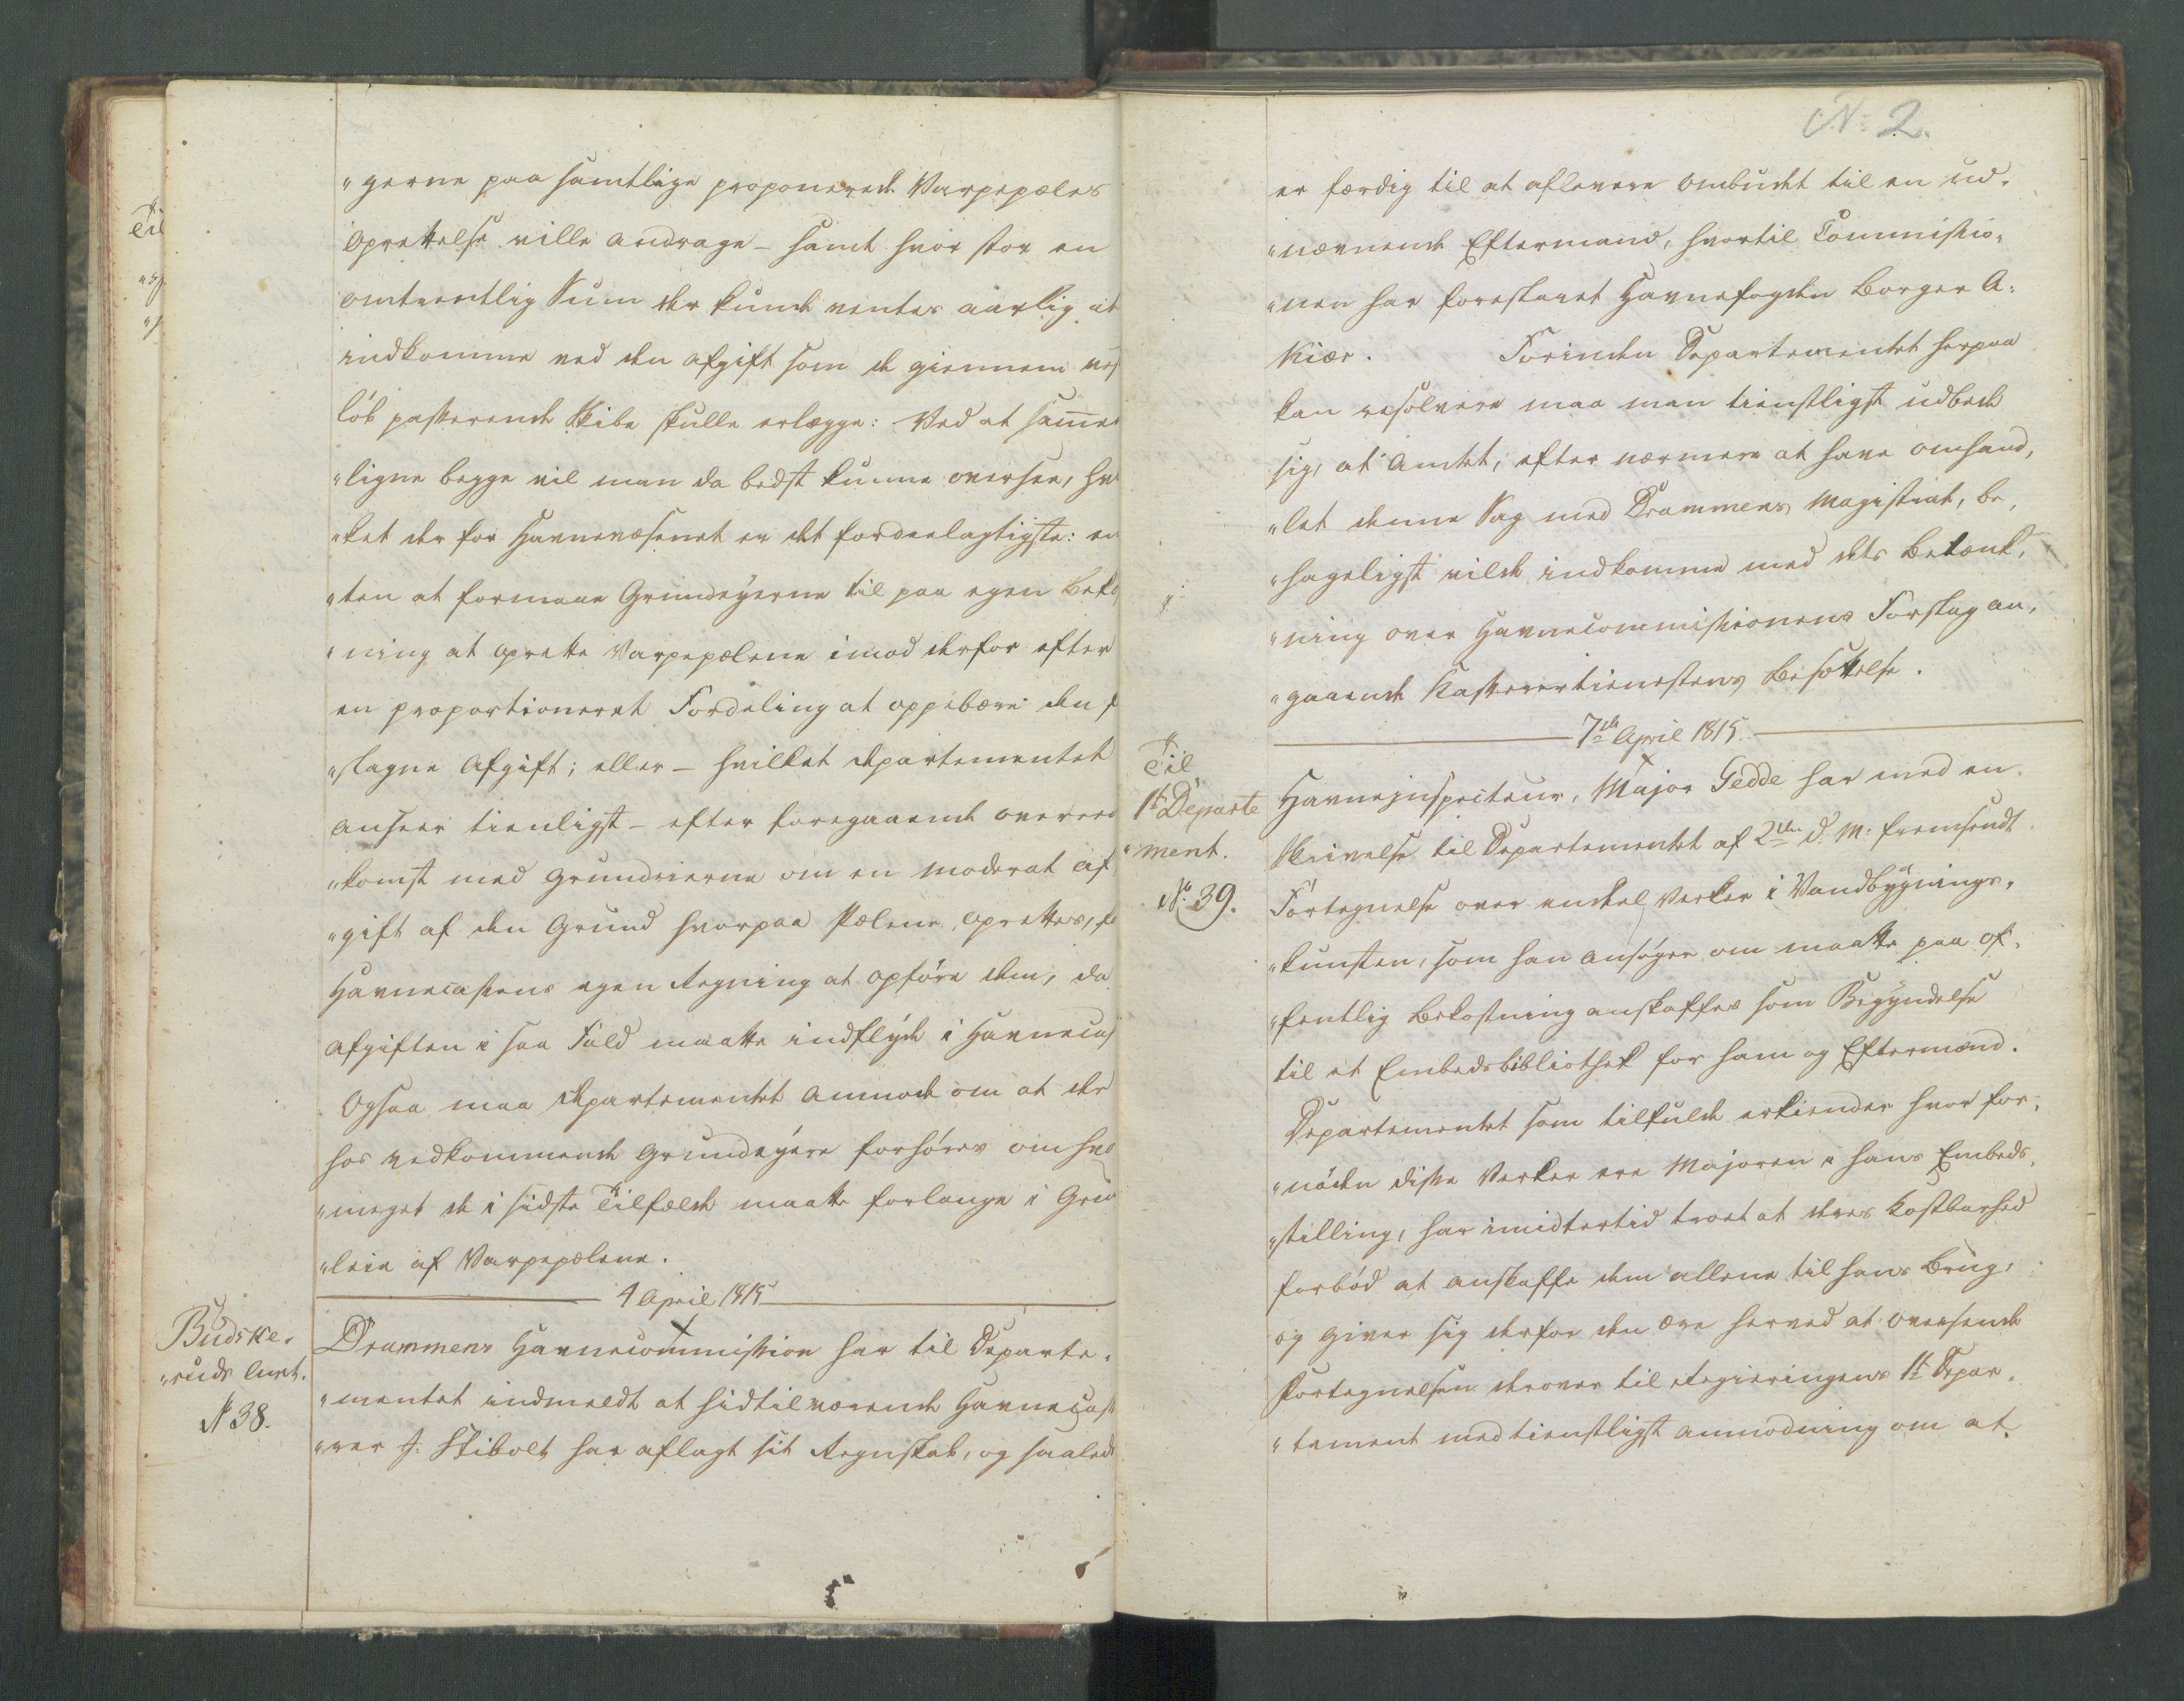 „gerne paa samtlige proponerede Varpepæles
Oprettelse ville andrage – samt hvor stor en
omtrentlig Sum der kunde ventes aarlig at
indkomme ved den Afgift som de giennem
løb passerende Skibe skulle erlægge: Ved at samen
„ligne begge vil man da bedst kunne oversee, hvil
„ket der for Havnevæsenet er det fordeelagtigste: en
„ten at formaae Grundeyerne til paa egen Bekost
„ning at oprette Varpepælene imod derfor efter
en proportioneret Fordeling at oppebære den f
„slagne Afgift; eller – hvilket Departementet
anseer tienligst – efter foregaaende overeens
„komst med Grundeierne om en moderat Af
„gift af den Grund hvorpaa Pælene oprettes,
Havnecassens egen Regning at opføre dem, da
Afgiften i saa Fald maatte indflyde i Havnecas
Ogsaa maa Departementet anmode om at der
hos vedkommende Grundeyere forhøres om hvor
„meget de i sidste Tilfælde maatte forlange i Grun
„leie af Varpepælene.
4 April 1815
Budske„
„ruds Amt.
N 38.
Drammens Havnecommission har til Departe„
„mentet indmeldt at hidtilværende Havnecass
„rer J: Skibolt har aflagt sit Regnskab, og saalede
N: 2.
er færdig til at aflevere Ombudet til en ud„
„nævnende Eftermand, hvortil Commissio„
„nen har foreslaaet Havnefogden Borger A:
Kiær. Forinden Departementet herpaa
kan resolvere maa man tienstligst udbede
sig, at Amtet, efter nærmere at have omhand„
„let denne Sag med Drammens Magistrat, be„
„hageligst vilde indkomme med dets Betænk„
„ning over Havnecommissionens Forslag an„
„gaaende KassererTienestens Besættelse.
7de April 1815.
Til
1te Departe
„ment.
No. 39.
Havneinspecteur, Major Gedde har med en
Skrivelse til Departementet af 2den d: M: fremsendt
Fortegnelse over endeel Verker i Vandbygnings„
„kunsten, som han ansøger om maatte paa of„
„fentlig Bekostning anskaffes som Begyndelse
til et Embedsbibliothek for ham og Eftermænd.
Departementet som tilfulde erkiender hvor for„
„nøden disse Verker ere Majoren i hans Embeds„
„stilling, har imidlertid troet at deres Kostbarhed
forbød at anskaffe dem allene til hans Brug,
og giver sig derfor den Ære herved at oversende
Fortegnelsen derover til Regieringens 1te Depar„
„tement med tienstligst Anmodning om at